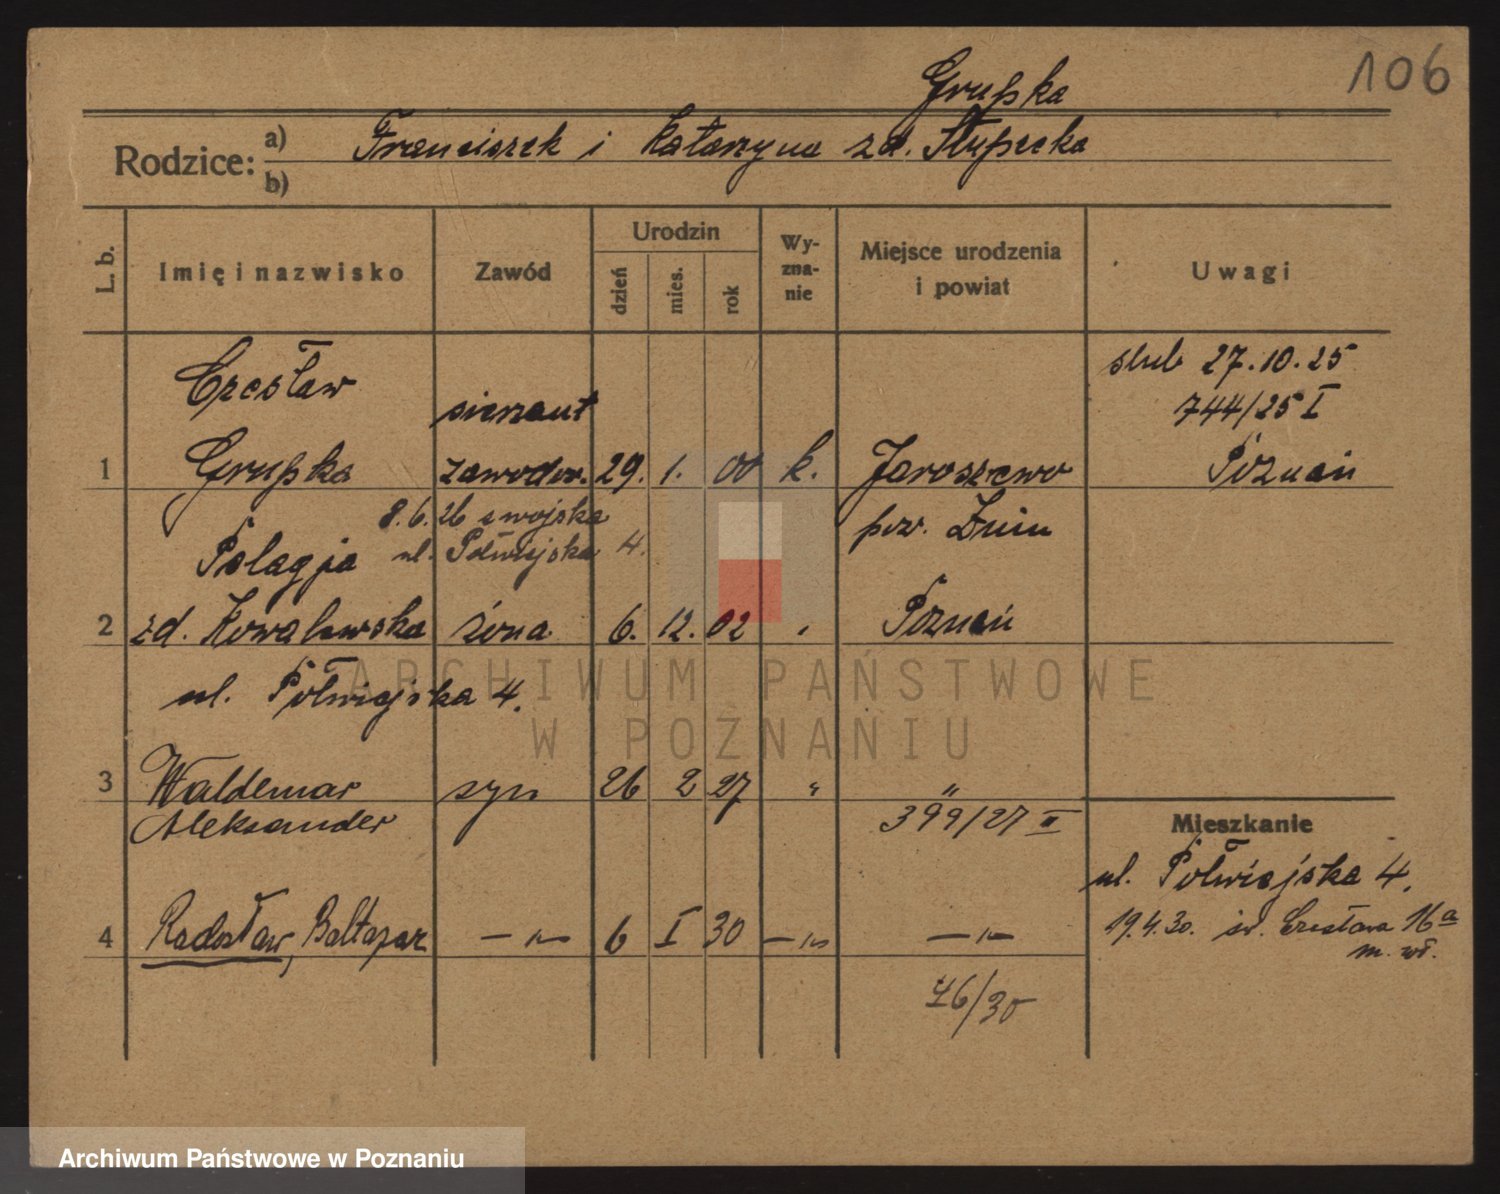 106
Grußka
Rodzice: a) Franciszek i Katarzyna zd. Słupecka
b)
L. b.
Imię i nazwisko
Zawód
Urodzin
dzień
mies.
rok
Wy-
zna-
nie
Miejsce urodzenia
i powiat
Uwagi
Czesław
sierżant
ślub 27.10.25
744/25 I
1 Grußka zawodow. 29. 1. 00 k. Jaroszewo Poznań
8.6.26
pow. Żnin
Pelagja ul. Półwiejska 4.
2 zd. Kowalewska żona 6. 12. 02 " Poznań
ul. Półwiejska 4.
3 Waldemar syn 26 2 27 " "
Aleksander 399/27 II
Mieszkanie
ul. Półwiejska 4.
4 Radosław, Baltazar —"— 6 I 30 —"— —"—
19.4.30. św. Czesława 16a
m. wł.
46/30
ARCHIWUM PAŃSTWOWE
W POZNANIU
Archiwum Państwowe w Poznaniu